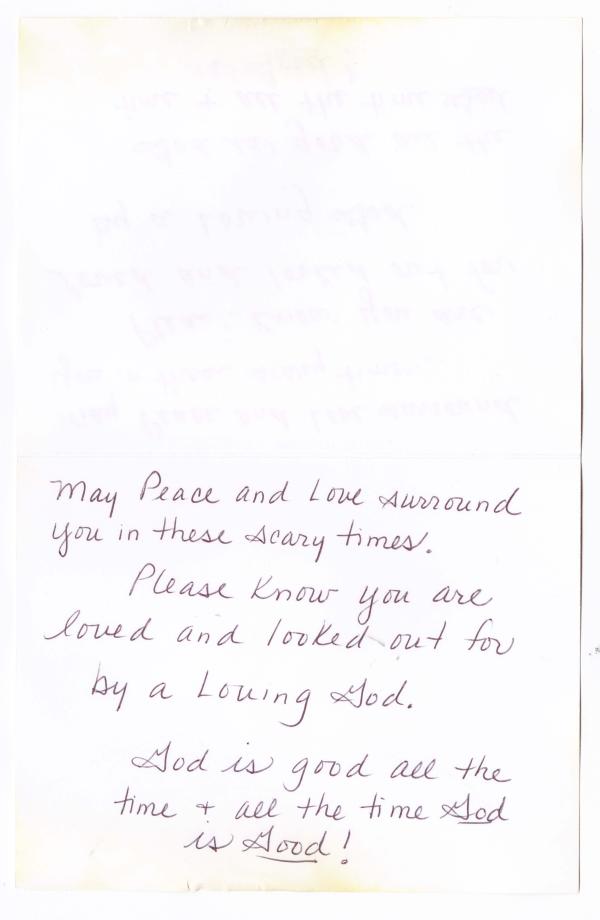 May Peace and Love surround
you in these scary times.
Please Know you are
loved and looked out for
by a Loving God.
God is good all the
time + all the time God
is Good!